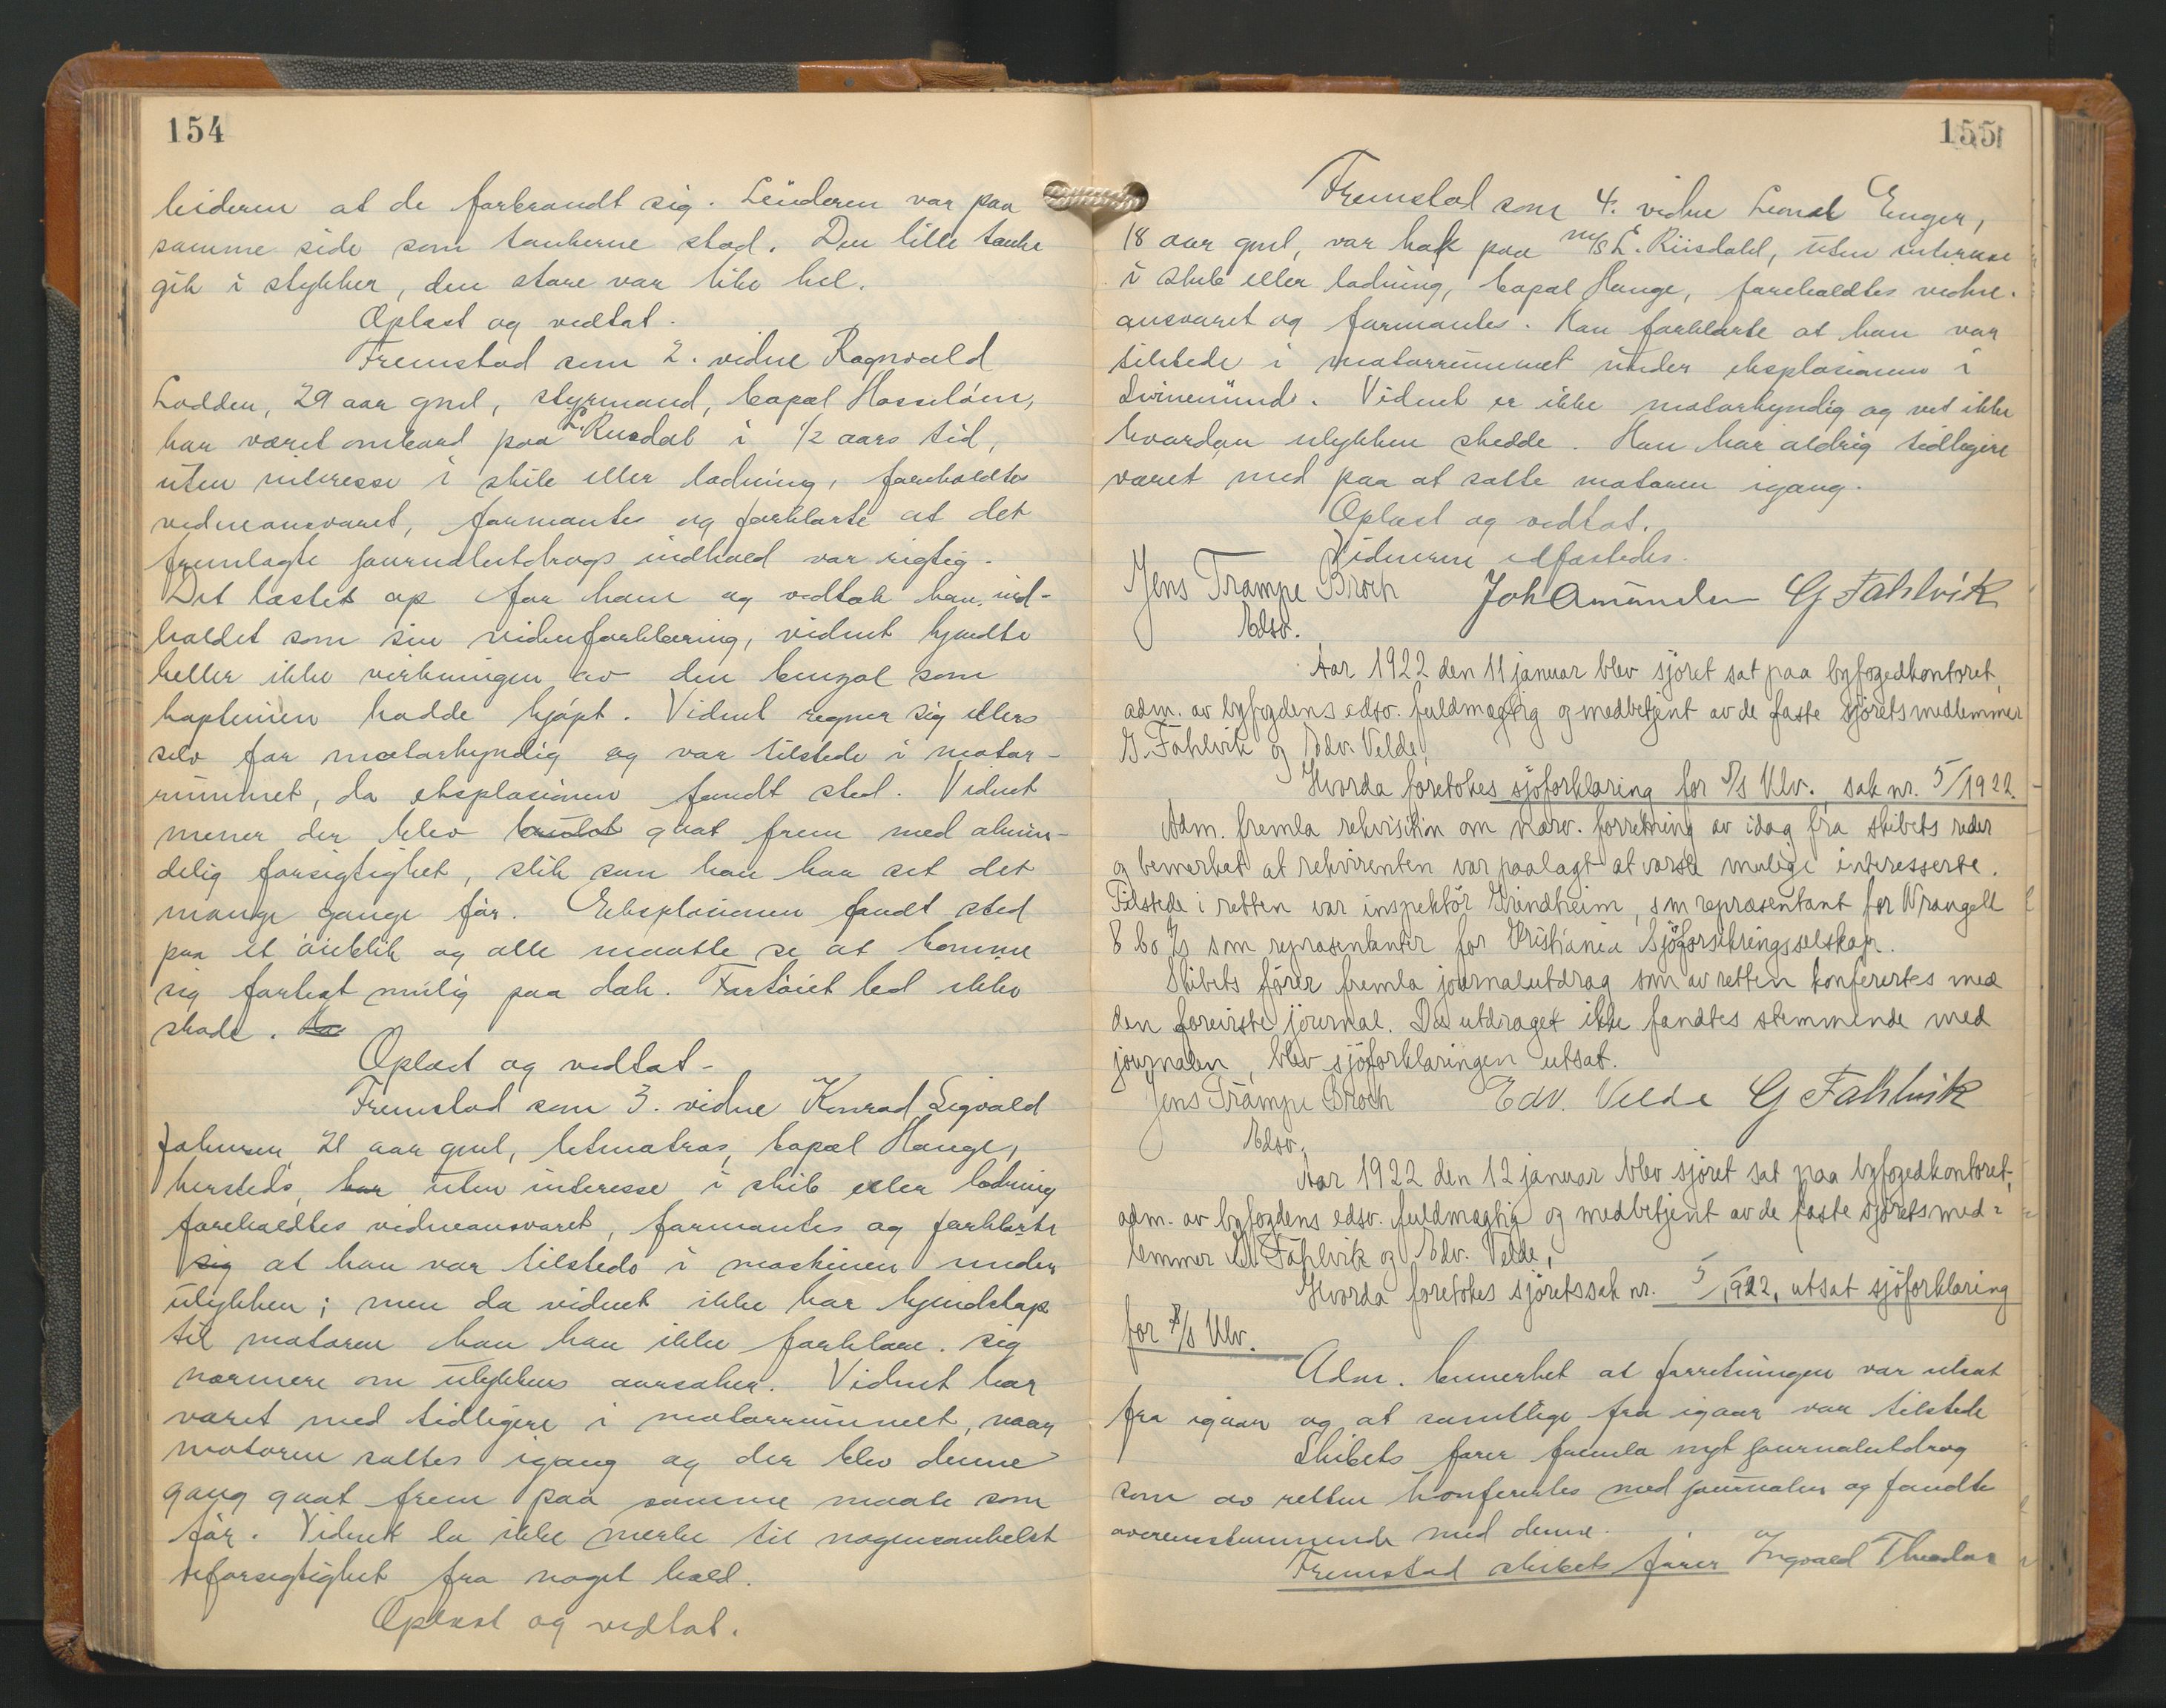 154
leideren at de forbrandt sig. Leideren var paa
samme side som tankerne stod. Den lille tanke
gik i stykker, den store var like hel.
Oplæst og vedtat.
Fremstod som 2. vidne Ragnvald
Lodden, 29 aar gml, styrmand, bopæl Hasseløen,
har været ombord paa L. Riisdal i 1/2 aars tid,
uten interesse i skib eller ladning, foreholdtes
vidneansvaret, formantes og forklarte at det
fremlagte journalutdrags indhold var rigtig.
Det læstes op for ham og vedtok han ind-
holdet som sin vidneforklaring, vidnet kjendte
heller ikke virkningen av den benzol som
kapteinen hadde kjøpt. Vidnet regner sig ellers
selv for motorkyndig og var tilstede i motor-
rummet, da eksplosionen fandt sted. Vidnet
mener der blev gaat frem med almin-
delig forsigtighet, slik som han har set det
mange gange før. Eksplosionen fandt sted
paa et øieblik og alle maatte se at komme
sig fortest mulig paa dæk. Fartøiet led ikke
skade.
Oplæst og vedtat.
Fremstod som 3. vidne Konrad Sigvald
Johnsen, 21 aar gml, letmatros, bopæl Hauge,
hersteds, har uten interesse i skib eller ladning
foreholdtes vidneansvaret, formantes og forklarte
sig at han var tilstede i maskinen under
ulykken; men da vidnet ikke har kjendskap
til motoren kan han ikke forklare sig
nærmere om ulykkens aarsaker. Vidnet har
været med tidligere i motorrummet, naar
motoren sattes igang og der blev denne
gang gaat frem paa samme maate som
før. Vidnet la ikke merke til nogensomhelst
uforsigtighet fra noget hold.
Oplæst og vedtat.
155
Fremstod som 4. vidne Leonal Enger,
18 aar gml, var kok paa m/s L. Riisdahl, uten interesse
i skib eller ladning, bopæl Hauge, foreholdtes vidne-
ansvaret og formantes. Han forklarte at han var
tilstede i motorrummet under eksplosionen i
Svinemünde. Vidnet er ikke motorkyndig og vet ikke
hvordan ulykken skedde. Han har aldrig tidligere
været med paa at sætte motoren igang.
Oplæst og vedtat.
Vidnerne edfæstedes.
Jens Trampe Broch Joh Amundsen G Fahlvik
Edsv.
Aar 1922 den 11 januar blev sjøret sat paa byfogedkontoret,
adm. av byfogdens edsv. fuldmægtig og medbetjent av de faste sjøretsmedlemmer
G. Fahlvik og Edv. Velde,
Hvorda foretokes sjøforklaring for S/S Ulv. sak nr. 5/1922.
Adm. fremla rekvisition om nærv. forretning av idag fra skibets reder
og bemerket at rekvirenten var paalagt at varsle mulige interesserte.
Tilstede i retten var inspektør Grindheim, som repræsentant for Wrangell
& Co A/S som repræsentanter for Kristiania Sjøforsikringsselskap.
Skibets fører fremla journalutdrag som av retten konferertes med
den foreviste journal. Da utdraget ikke fandtes stemmende med
journalen, blev sjøforklaringen utsat.
Jens Trampe Broch Edv. Velde G Fahlvik
Edsv.
Aar 1922 den 12 januar blev sjøret sat paa byfogedkontoret,
adm. av byfogdens edsv. fuldmægtig og medbetjent av de faste sjøretsmed-
lemmer Fahlvik og Edv. Velde,
Hvorda foretokes sjøretssak nr. 5/1922, utsat sjøforklaring
for S/S Ulv.
Adm. bemerket at forretningen var utsat
fra igaar og at samtlige fra igaar var tilstede
Skibets fører fremla nyt journalutdrag
som av retten konferertes med journalen og fandtes
overensstemmende med denne.
Fremstod skibets fører Ingvald Theodor